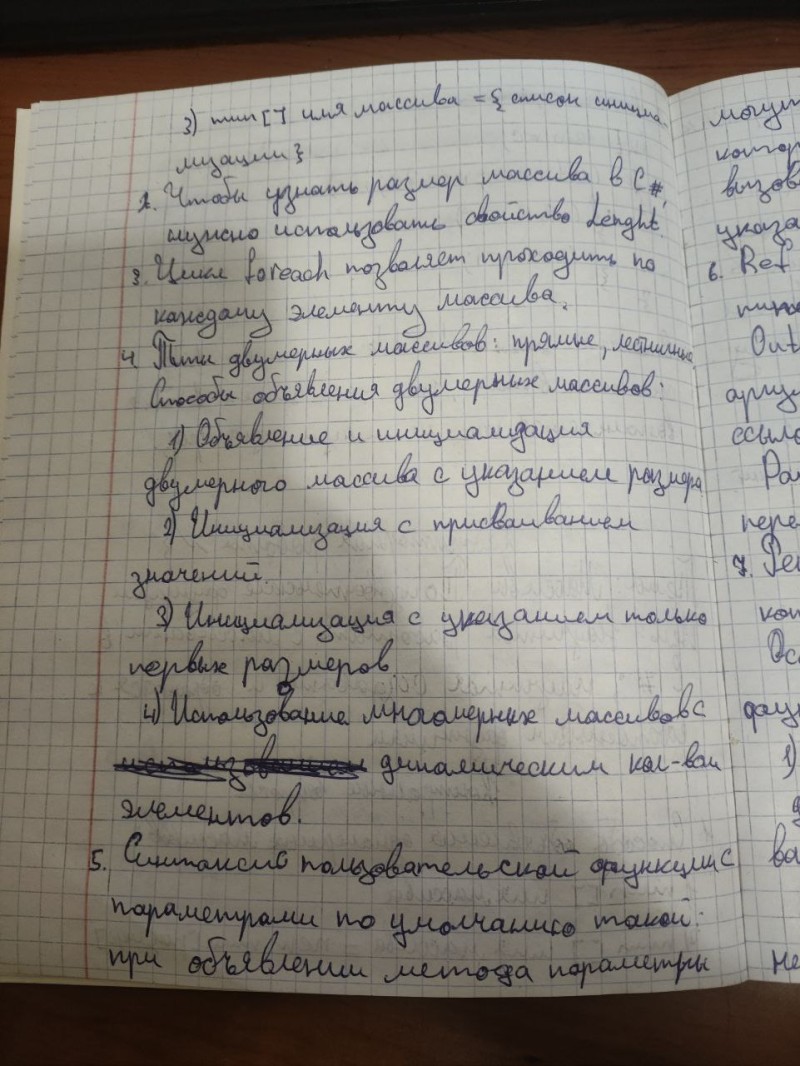 3) тип [] имя массива = { список инициа-
лизации}
2. Чтобы узнать размер массива в C#,
нужно использовать свойство Lenght.
3. Цикл foreach позволяет проходить по
каждому элементу массива.
4. Типы двумерных массивов: прямые, лестничные
Способы объявления двумерных массивов:
1) Объявление и инициализация
двумерного массива с указанием размера
2) Инициализация с присваиванием
значений.
3) Инициализация с указанием только
первых размеров.
4) Использование многомерных массивов с
динамическим кол-вом
элементов.
5. Синтаксис пользовательской функции с
параметрами по умолчанию такой:
при объявлении метода параметры
могут
вызов
указа
6. Ref
Out
аргум
ссыло
пере
7.
1)
не